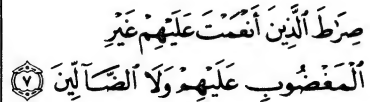 صِرَٰطَ ٱلَّذِينَ أَنْعَمْتَ عَلَيْهِمْ غَيْرِ
ٱلْمَغْضُوبِ عَلَيْهِمْ وَلَا ٱلضَّآلِّينَ ﴿٧﴾